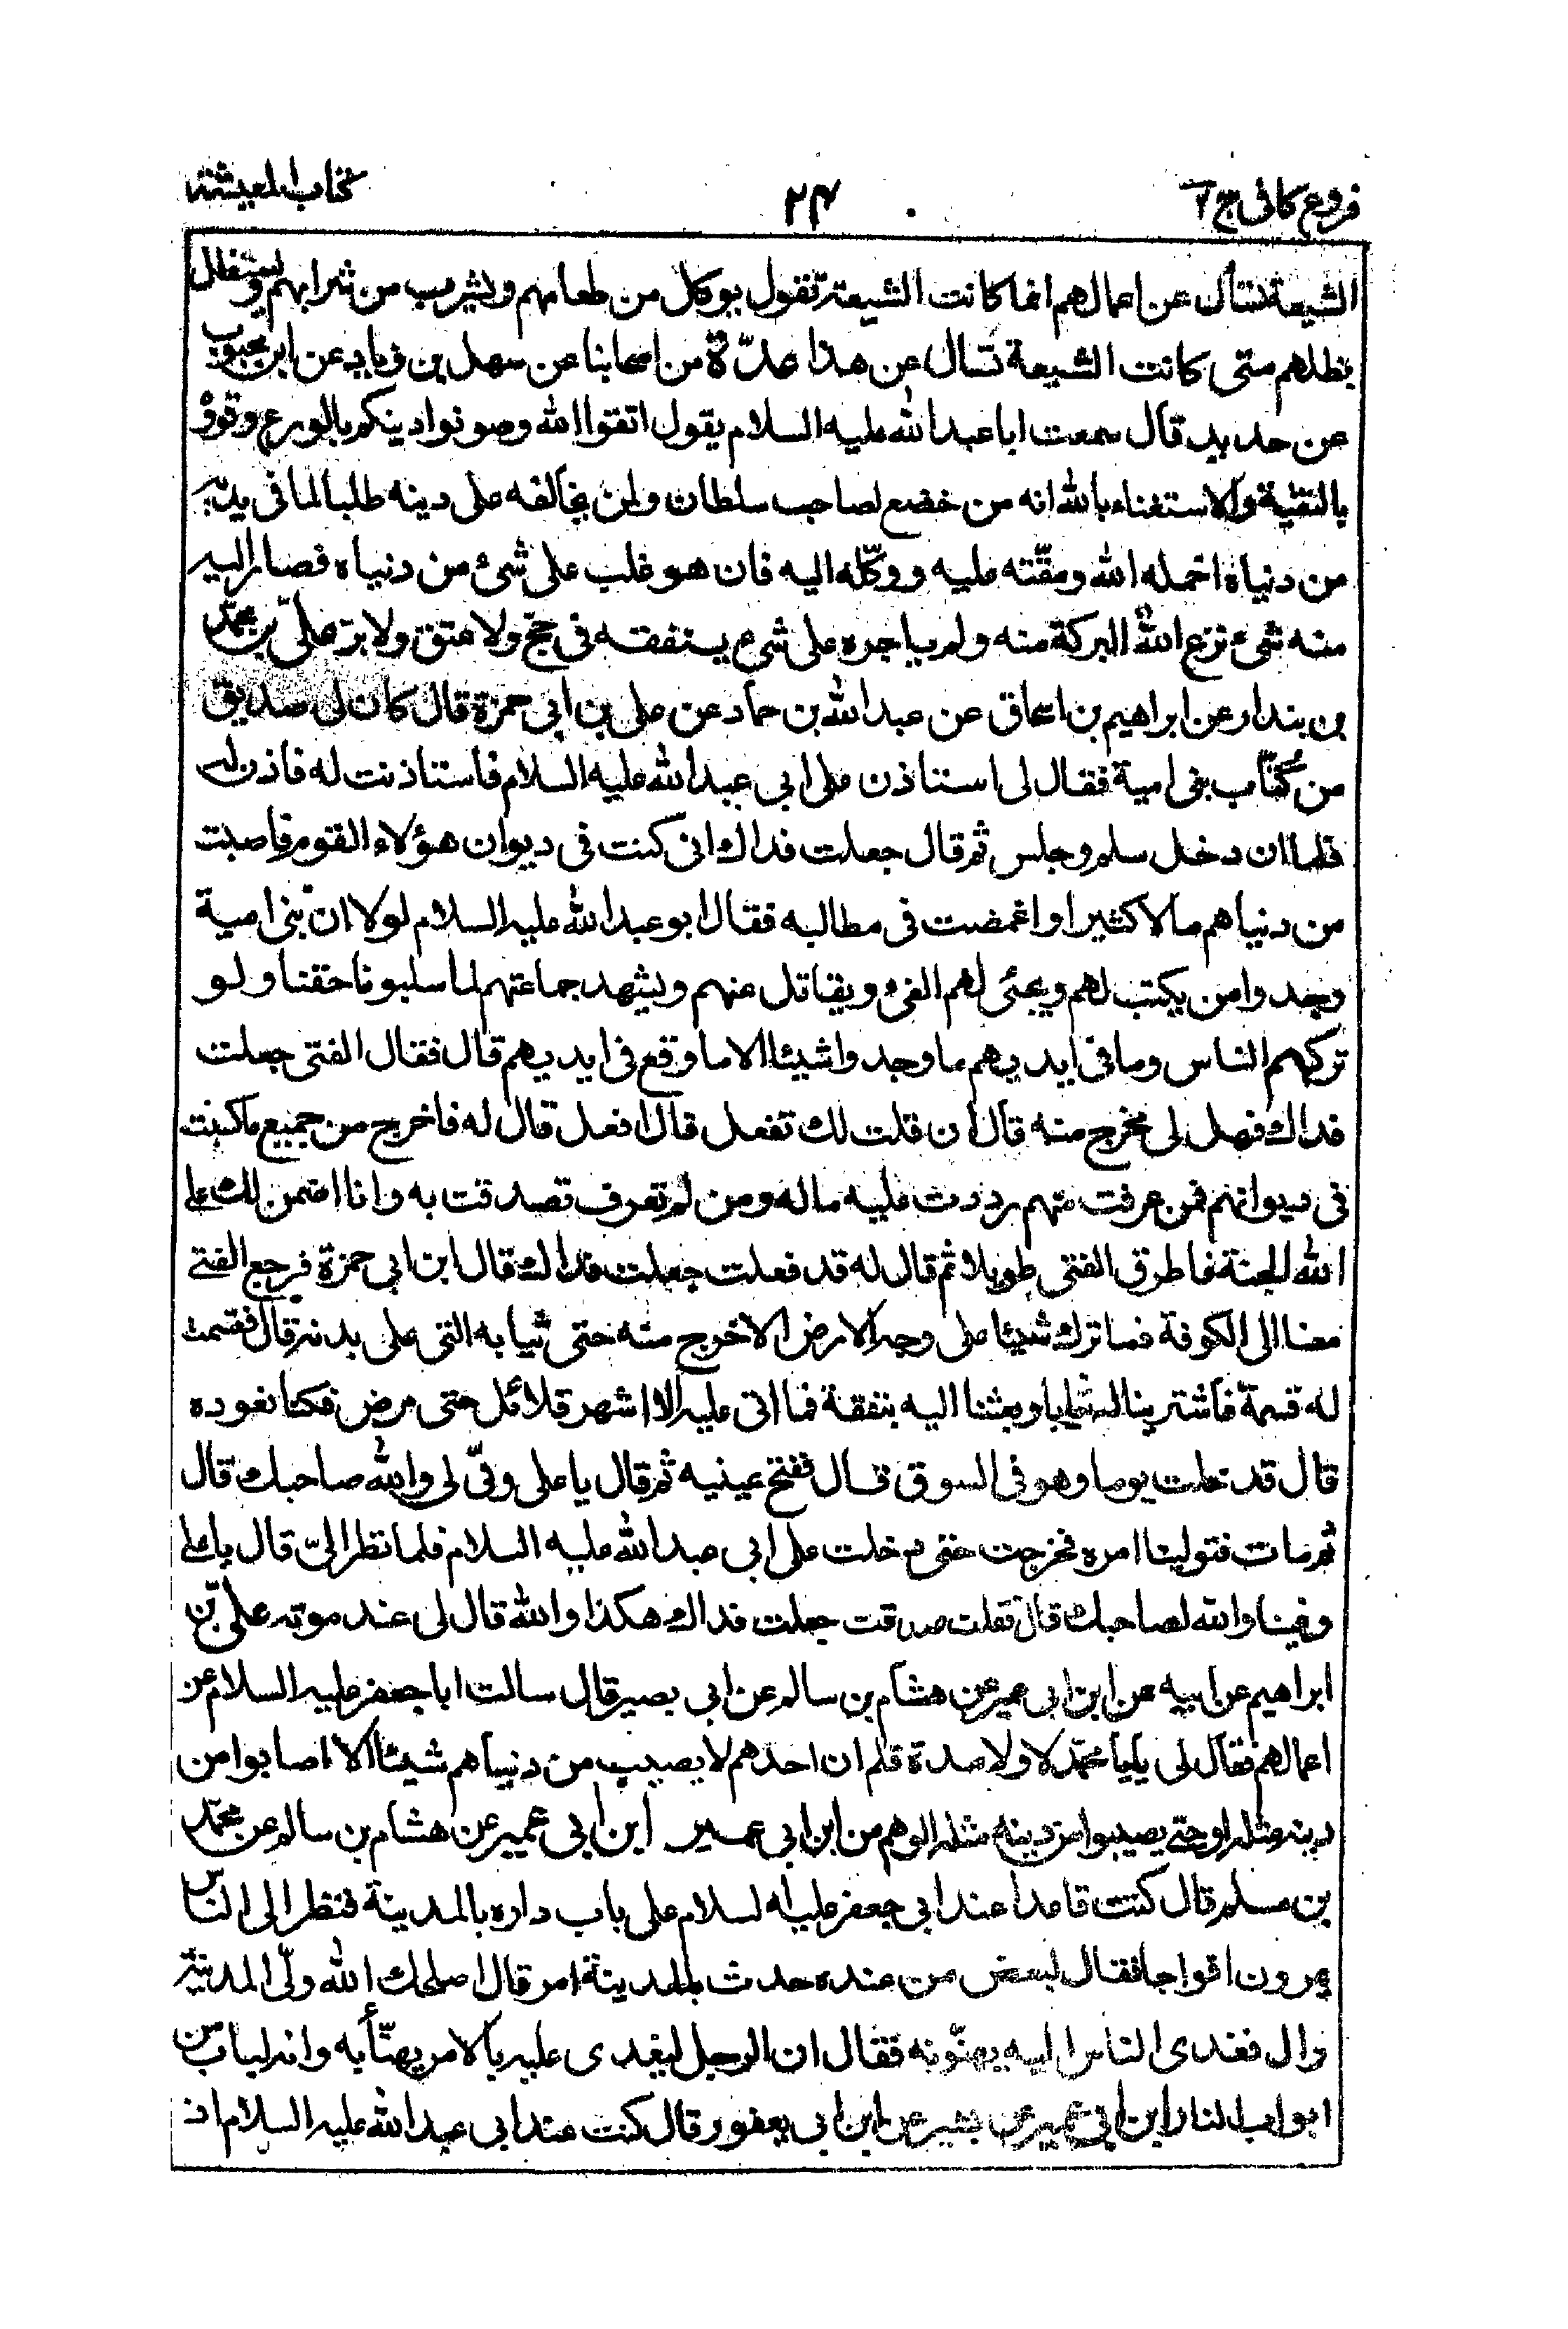 فروع كافى ج ٢
٢٣
كتاب المعيشة
الشيعة تسأل عن اعمالهم انما كانت الشيعة تقول يوكل من طعامهم ويشرب من شرابهم ويستظل
بظلهم متى كانت الشيعة تسال عن هذا عدّة من اصحابنا عن سهل بن زياد عن ابن محبوب
عن حديد قال سمعت ابا عبد الله عليه السلام يقول اتقوا الله وصونوا دينكم بالورع وقووه
بالتقية والاستغناء بالله انه من خضع لصاحب سلطان ولمن يخالفه على دينه طلبا لما فى يديه
من دنياه اخمله الله ومقّته عليه ووكّله اليه فان هو غلب على شئ من دنياه فصار اليه
منه شئ نزع الله البركة منه ولم ياجره على شئ ينفقه فى حجّ ولا عتق ولا برّ علىّ بن محمّد
بن بندار عن ابراهيم بن اسحاق عن عبد الله بن حماد عن على بن ابى حمزة قال كان لى صديق
من كُتّاب بنى امية فقال لى استاذن على ابى عبد الله عليه السلام فاستاذنت له فاذن له
فلما ان دخل سلم وجلس ثم قال جعلت فداك انى كنت فى ديوان هؤلاء القوم فاصبت
من دنياهم مالا كثيرا واغمضت فى مطالبه فقال ابو عبد الله عليه السلام لولا ان بنى امية
وجدوا من يكتب لهم ويجبئى لهم الفئ ويقاتل عنهم ويشهد جماعتهم لما سلبونا حقنا ولو
تركهم الناس وما فى ايديهم ما وجدوا شيئا الا ما وقع فى ايديهم قال فقال الفتى جعلت
فداك فهل لى مخرج منه قال ان قلت لك تفعل قال افعل قال له فاخرج من جميع ما كسبت
فى ديوانهم فمن عرفت منهم رددت عليه ماله ومن لم تعرف تصدقت به وانا اضمن لك على
الله الجنة فاطرق الفتى طويلا ثم قال له قد فعلت جعلت فداك قال ابن ابى حمزة فرجع الفتى
معنا الى الكوفة فما ترك شيئا على وجه الارض الا خرج منه حتى ثيابه التى على بدنه قال فقسمت
له قسمة فاشترينا له ثيابا وبعثنا اليه بنفقة فما اتى عليه الا اشهر قلائل حتى مرض فكنا نعوده
قال فدخلت يوما وهو فى السوق قال ففتح عينيه ثم قال يا على وفّى لى والله صاحبك قال
ثم مات فتولينا امره فخرجت حتى دخلت على ابى عبد الله عليه السلام فلما نظر الىّ قال يا على
وفينا والله لصاحبك قال فقلت صدقت جعلت فداك هكذا والله قال لى عند موته علىّ بن
ابراهيم عن ابيه عن ابن ابى عمير عن هشام بن سالم عن ابى بصير قال سالت ابا جعفر عليه السلام عن
اعمالهم فقال لى يابا محمّد لا ولا مدة قلم ان احدهم لا يصيب من دنياهم شيئا الا اصابوا من
دينه مثله او حتى يصيبوا من دينه مثله الوهم من ابن ابى عمير ابن ابى عمير عن هشام بن سالم عن محمّد
بن مسلم قال كنت قاعدا عند ابى جعفر عليه السلام على باب داره بالمدينة فنظر الى الناس
يمرون افواجا فقال لبعض من عنده حدث بالمدينة امر قال اصلحك الله ولّى المدينة
وال فغدى الناس اليه يهنّونه فقال ان الرجل ليغدى عليه بالامر يهنّأ به وانه لباب من
ابواب النار ابن ابى عمير عن بشير عن ابن ابى يعفور قال كنت عند ابى عبد الله عليه السلام اذ